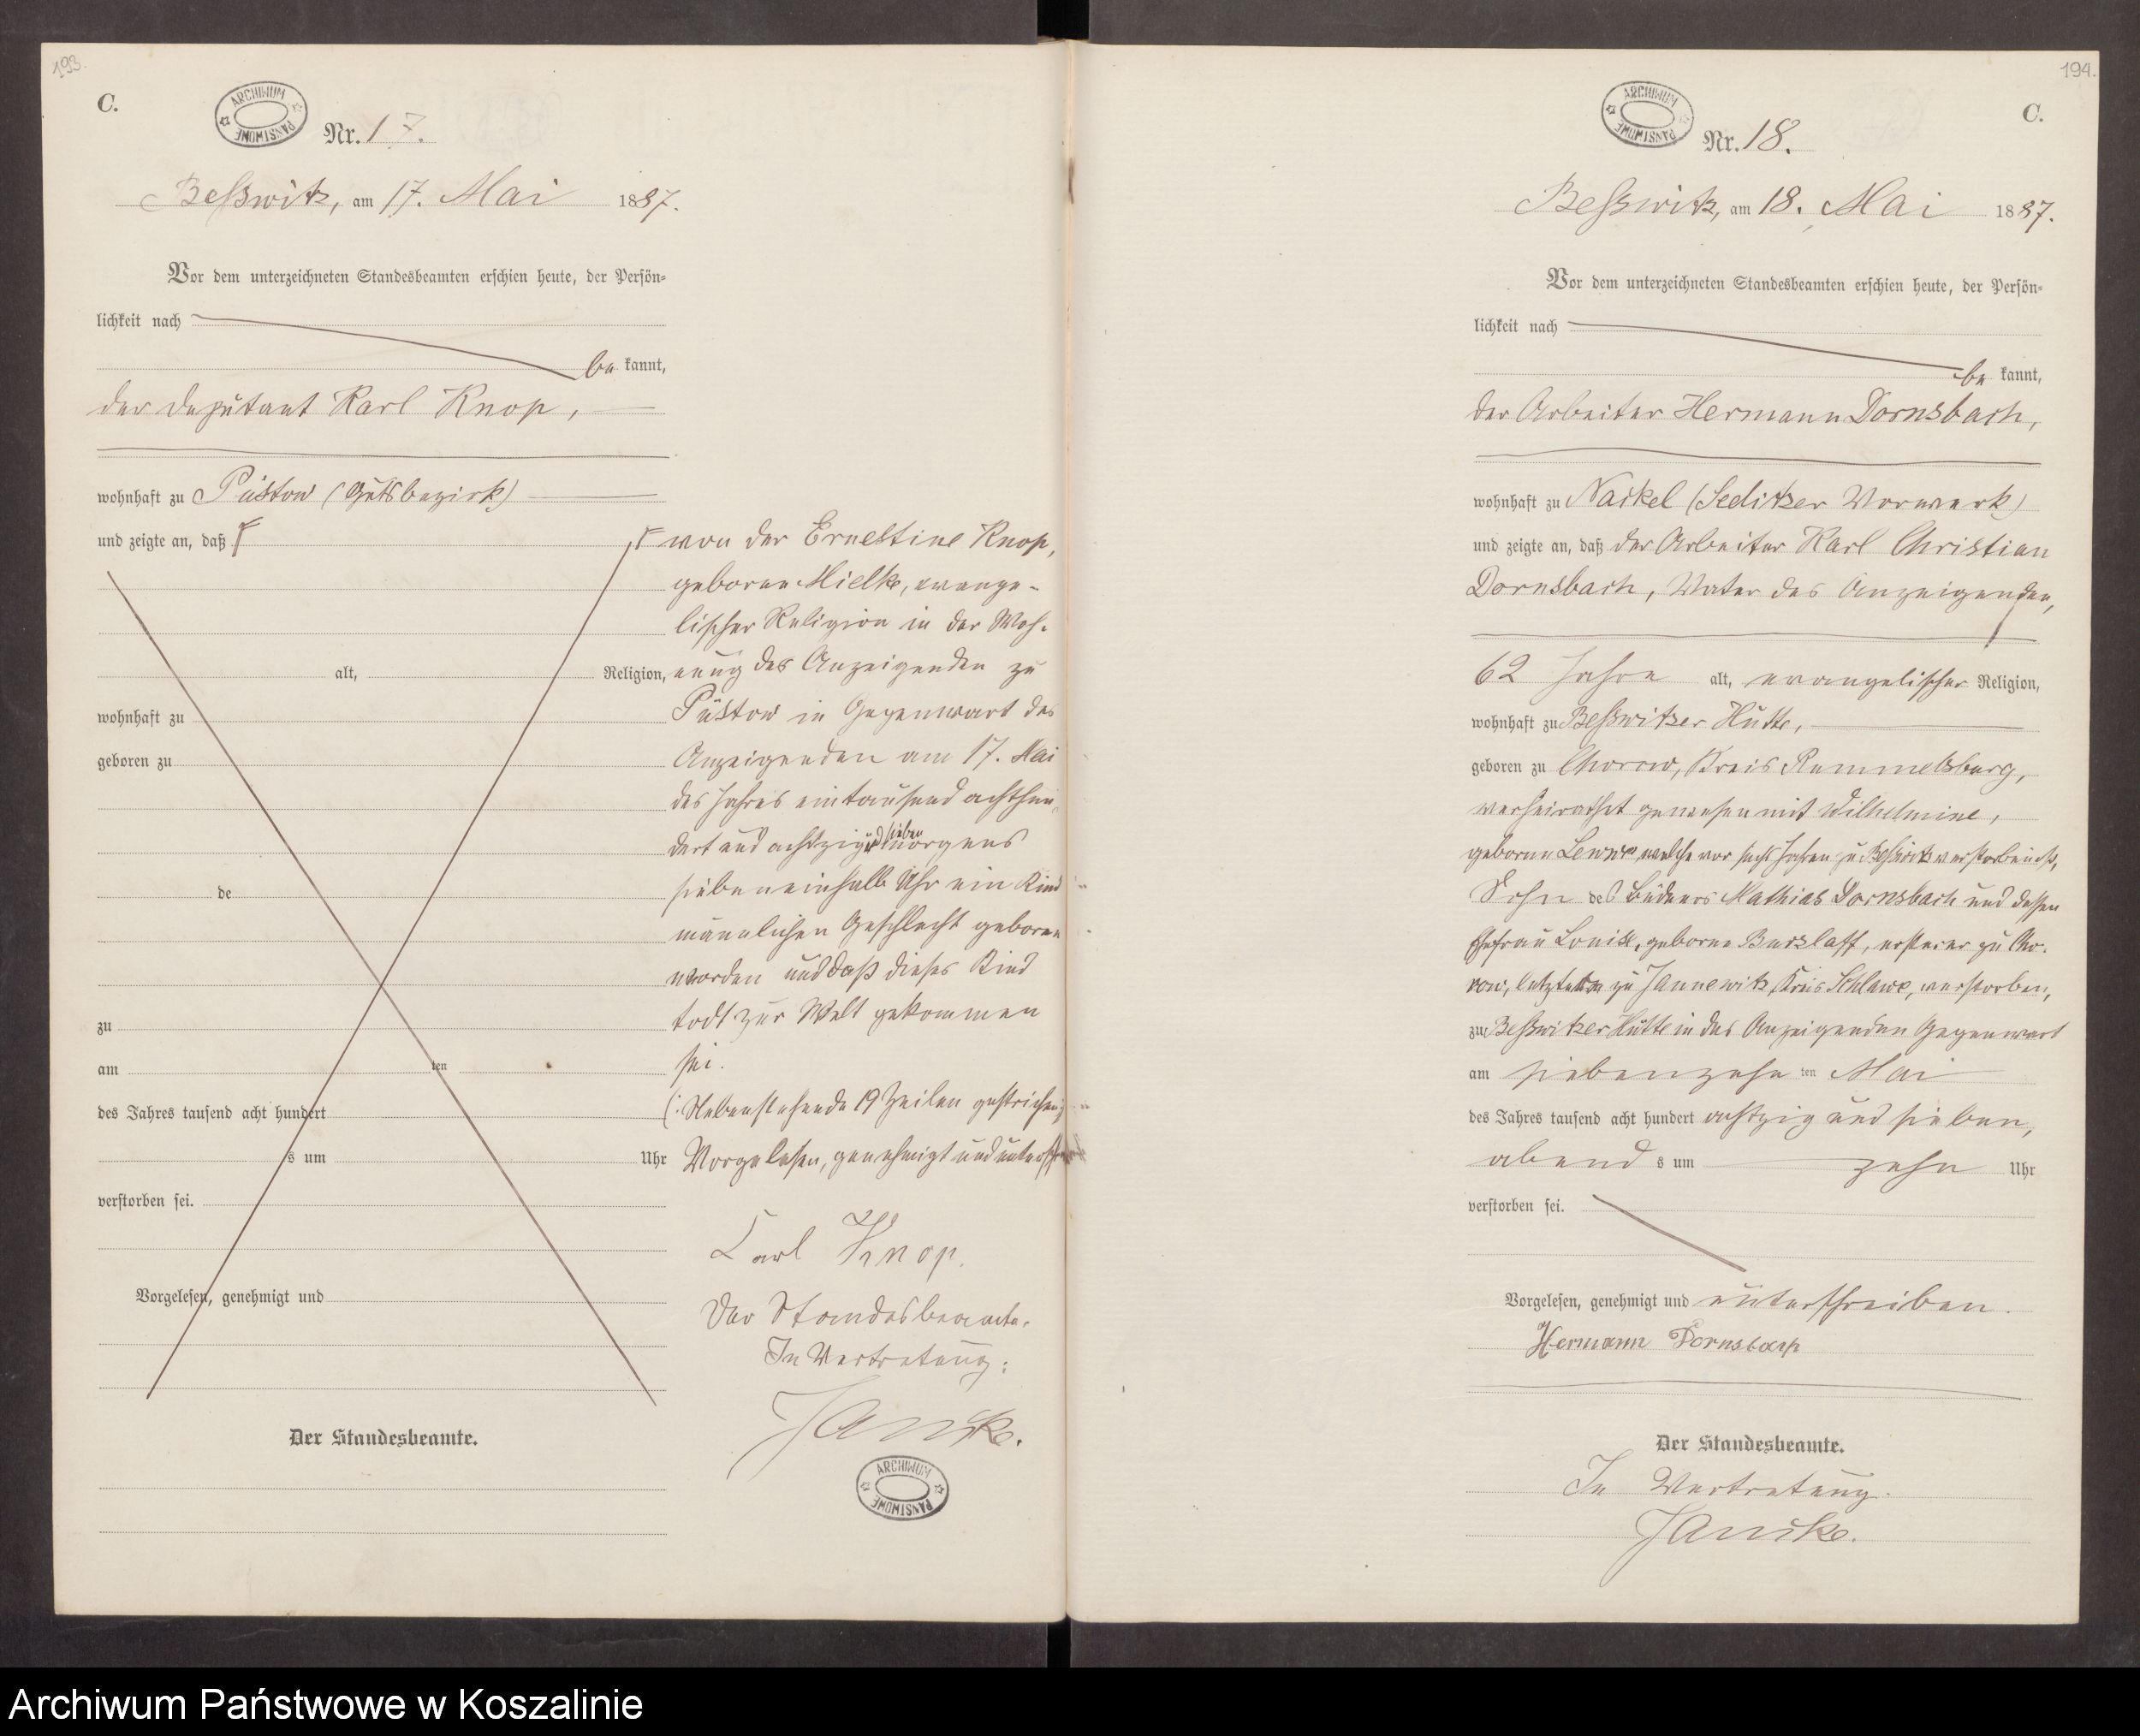 193.
C.
ARCHIWUM PAŃSTWOWE
Nr. 17.
Beßwitz, am 17. Mai 1887.
Vor dem unterzeichneten Standesbeamten erschien heute, der Persön-
lichkeit nach
be kannt,
der Deputant Karl Knop,
wohnhaft zu Püstow (Gutsbezirk)
und zeigte an, daß
alt, Religion,
wohnhaft zu
geboren zu
de
zu
am ten
des Jahres tausend acht hundert
s um Uhr
verstorben sei.
Vorgelesen, genehmigt und
Der Standesbeamte.
von der Ernestine Knop,
geborene Mielke, evange-
lischer Religion in der Woh-
nung des Anzeigenden zu
Püstow in Gegenwart des
Anzeigenden am 17. Mai
des Jahres eintausend achthun
dert und achtzig und sieben morgens
siebeneinhalb Uhr ein Kind
männlichen Geschlecht geboren
worden und daß dieses Kind
todt zur Welt gekommen
sei.
(: Nebenstehende 19 Zeilen gestrichen :)
Vorgelesen, genehmigt und
Carl Knop.
Der Standesbeamte.
In Vertretung:
Janike.
ARCHIWUM PAŃSTWOWE
194.
C.
ARCHIWUM PAŃSTWOWE
Nr. 18.
Beßwitz, am 18. Mai 1887.
Vor dem unterzeichneten Standesbeamten erschien heute, der Persön-
lichkeit nach
be kannt,
der Arbeiter Hermann Dornsbach,
wohnhaft zu Nackel (Seelitzer Vorwerk)
und zeigte an, daß der Arbeiter Karl Christian
Dornsbach, Vater des Anzeigenden,
62 Jahre alt, evangelischer Religion,
wohnhaft zu Beßwitzer Hütte,
geboren zu Chorow, Kreis Rummelsburg,
verheirathet gewesen mit Wilhelmine,
geborene welche vor sechs Jahren zu Beßwitz verstorben ist,
Sohn des Büdners Mathias Dornsbach und dessen
Ehefrau Louise, geborne Burzlaff, ersterer zu Cho-
row, letztere zu Jannewitz, Kreis Schlawe, verstorben,
zu Beßwitzer Hütte in des Anzeigenden Gegenwart
am siebenzehn ten Mai
des Jahres tausend acht hundert achtzig und sieben,
abend s um zehn Uhr
verstorben sei.
Vorgelesen, genehmigt und unterschreiben.
Hermann Dornsbach
Der Standesbeamte.
In Vertretung.
Janike.
Archiwum Państwowe w Koszalinie